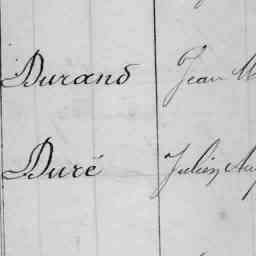 Durand Jean M
Duré Julien Au